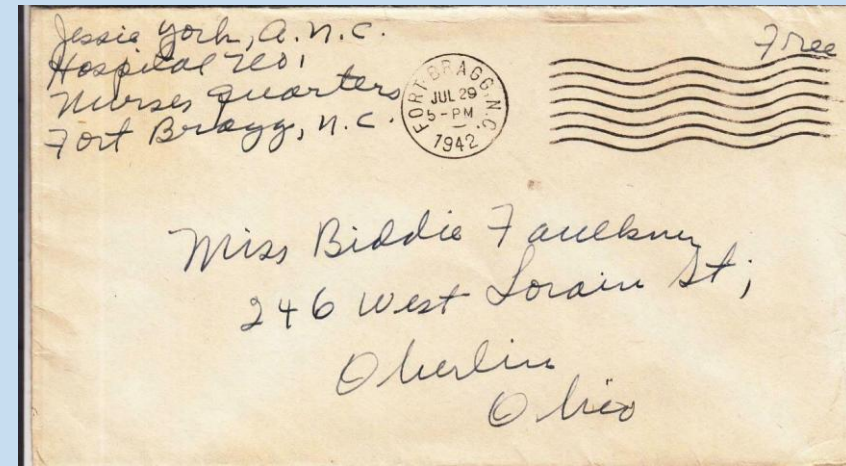 Jessie York, A.N.C.
Hospital No 1
Nurses Quarters
Fort Bragg, N.C.
Free
FORT BRAGG, N.C.
JUL 29
5-PM
1942
Miss Biddie Faulkner
246 West Lorain St;
Oberlin
Ohio